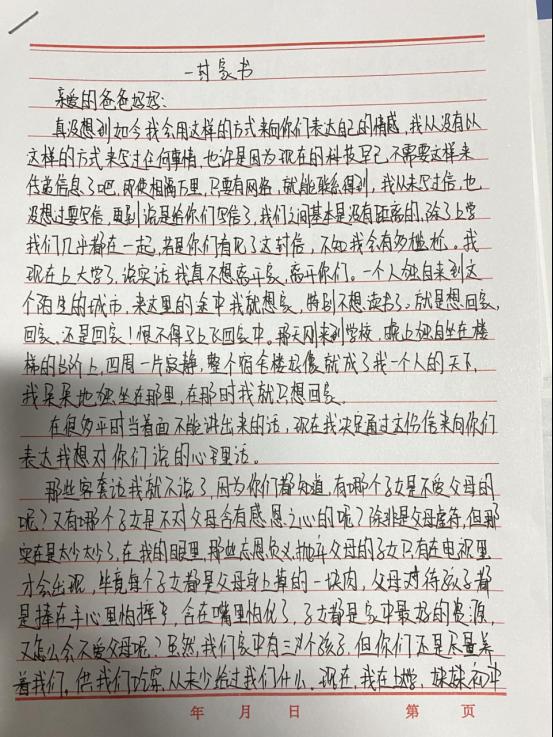 一封家书
亲爱的爸爸妈妈：
真没想到如今我会用这样的方式来向你们表达自己的情感，我从没有以
这样的方式来写过任何事情，也许是因为现在的科技早已不需要这样来
传递信息了吧，即使相隔万里，只要有网络，就能联系得到，我从未写过信，也
没想过要写信，更别说是给你们写信了，我们之间基本是没有距离的，除了上学
我们几乎都在一起，若是你们看见了这封信，不知我会有多尴尬。我
现在上大学了，说实话我真不想离开家，离开你们。一个人独自来到这
个陌生的城市，来这里的途中我就想家，特别不想读书了。就是想回家，
回家，还是回家！恨不得马上飞回家中。那天刚来到学校，晚上独自坐在楼
梯的台阶上，四周一片寂静，整个宿舍楼好像就成了我一个人的天下，
我呆呆地独坐在那里，在那时我就只想回家。
在很多平时当着面不能讲出来的话，现在我决定通过这份信来向你们
表达我想对你们说的心里话。
那些客套话我就不说了，因为你们都知道，有哪个子女是不爱父母的
呢？又有哪个子女是不对父母含有感恩之心的呢？除非是父母虐待，但那
实在是太少太少了，在我的眼里，那些忘恩负义，抛弃父母的子女只有在电视里
才会出现，毕竟每个子女都是父母身上掉的一块肉，父母对待孩子都
是捧在手心里怕摔了，含在嘴里怕化了，子女都是家中最好的资源，
又怎么会不爱父母呢？虽然，我们家中有三个孩子，但你们还是尽量养
着我们，供我们吃穿，从未少给过我们什么。现在，我在上大学，妹妹初中
年 月 日 第 页